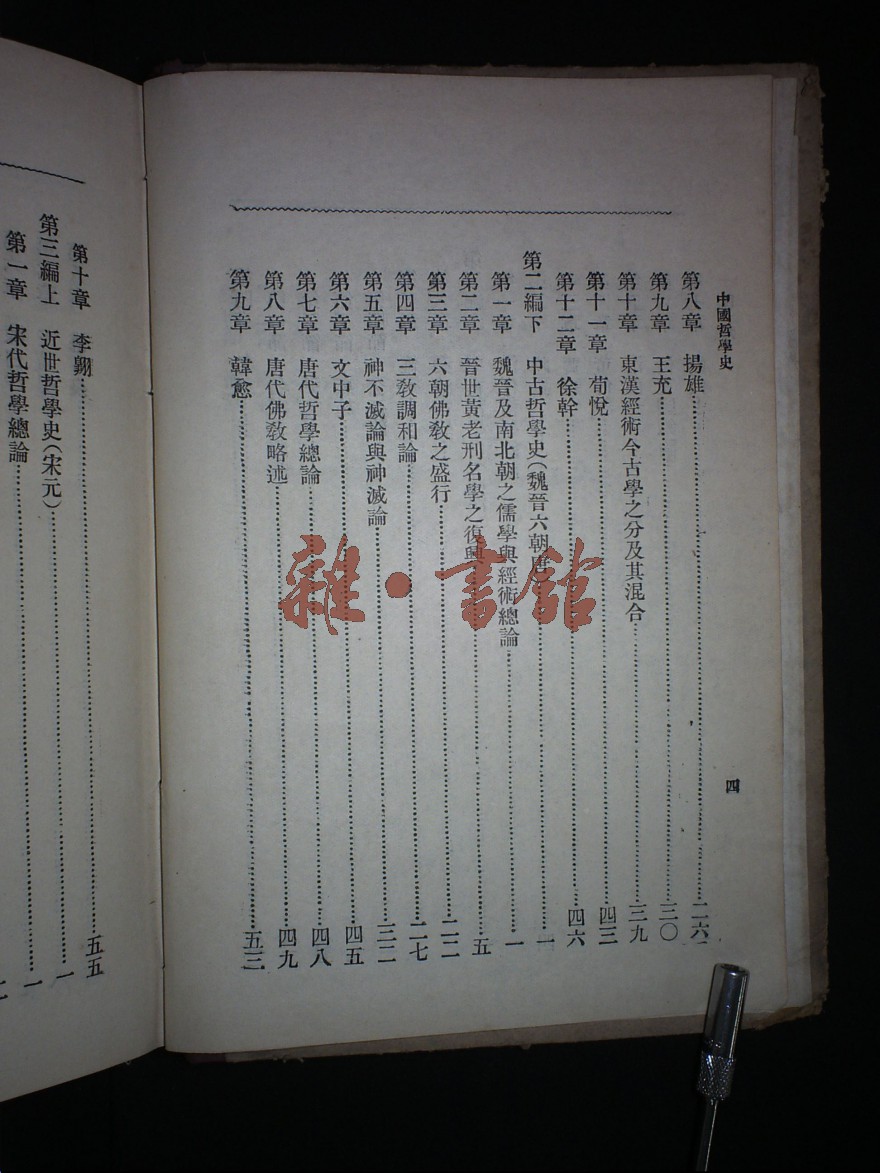 中國哲學史
四
第八章 揚雄 二六
第九章 王充 三〇
第十章 東漢經術今古學之分及其混合 三九
第十一章 荀悅 四三
第十二章 徐幹 四六
第二編下 中古哲學史(魏晉六朝唐 一
第一章 魏晉及南北朝之儒學與經術總論 一
第二章 晉世黃老刑名學之復興 五
第三章 六朝佛教之盛行 二二
第四章 三教調和論 二七
第五章 神不滅論與神滅論 三二
第六章 文中子 四五
第七章 唐代哲學總論 四八
第八章 唐代佛教略述 四九
第九章 韓愈 五三
第十章 李翺 五五
第三編上 近世哲學史(宋元) 一
第一章 宋代哲學總論 一
雜·書館